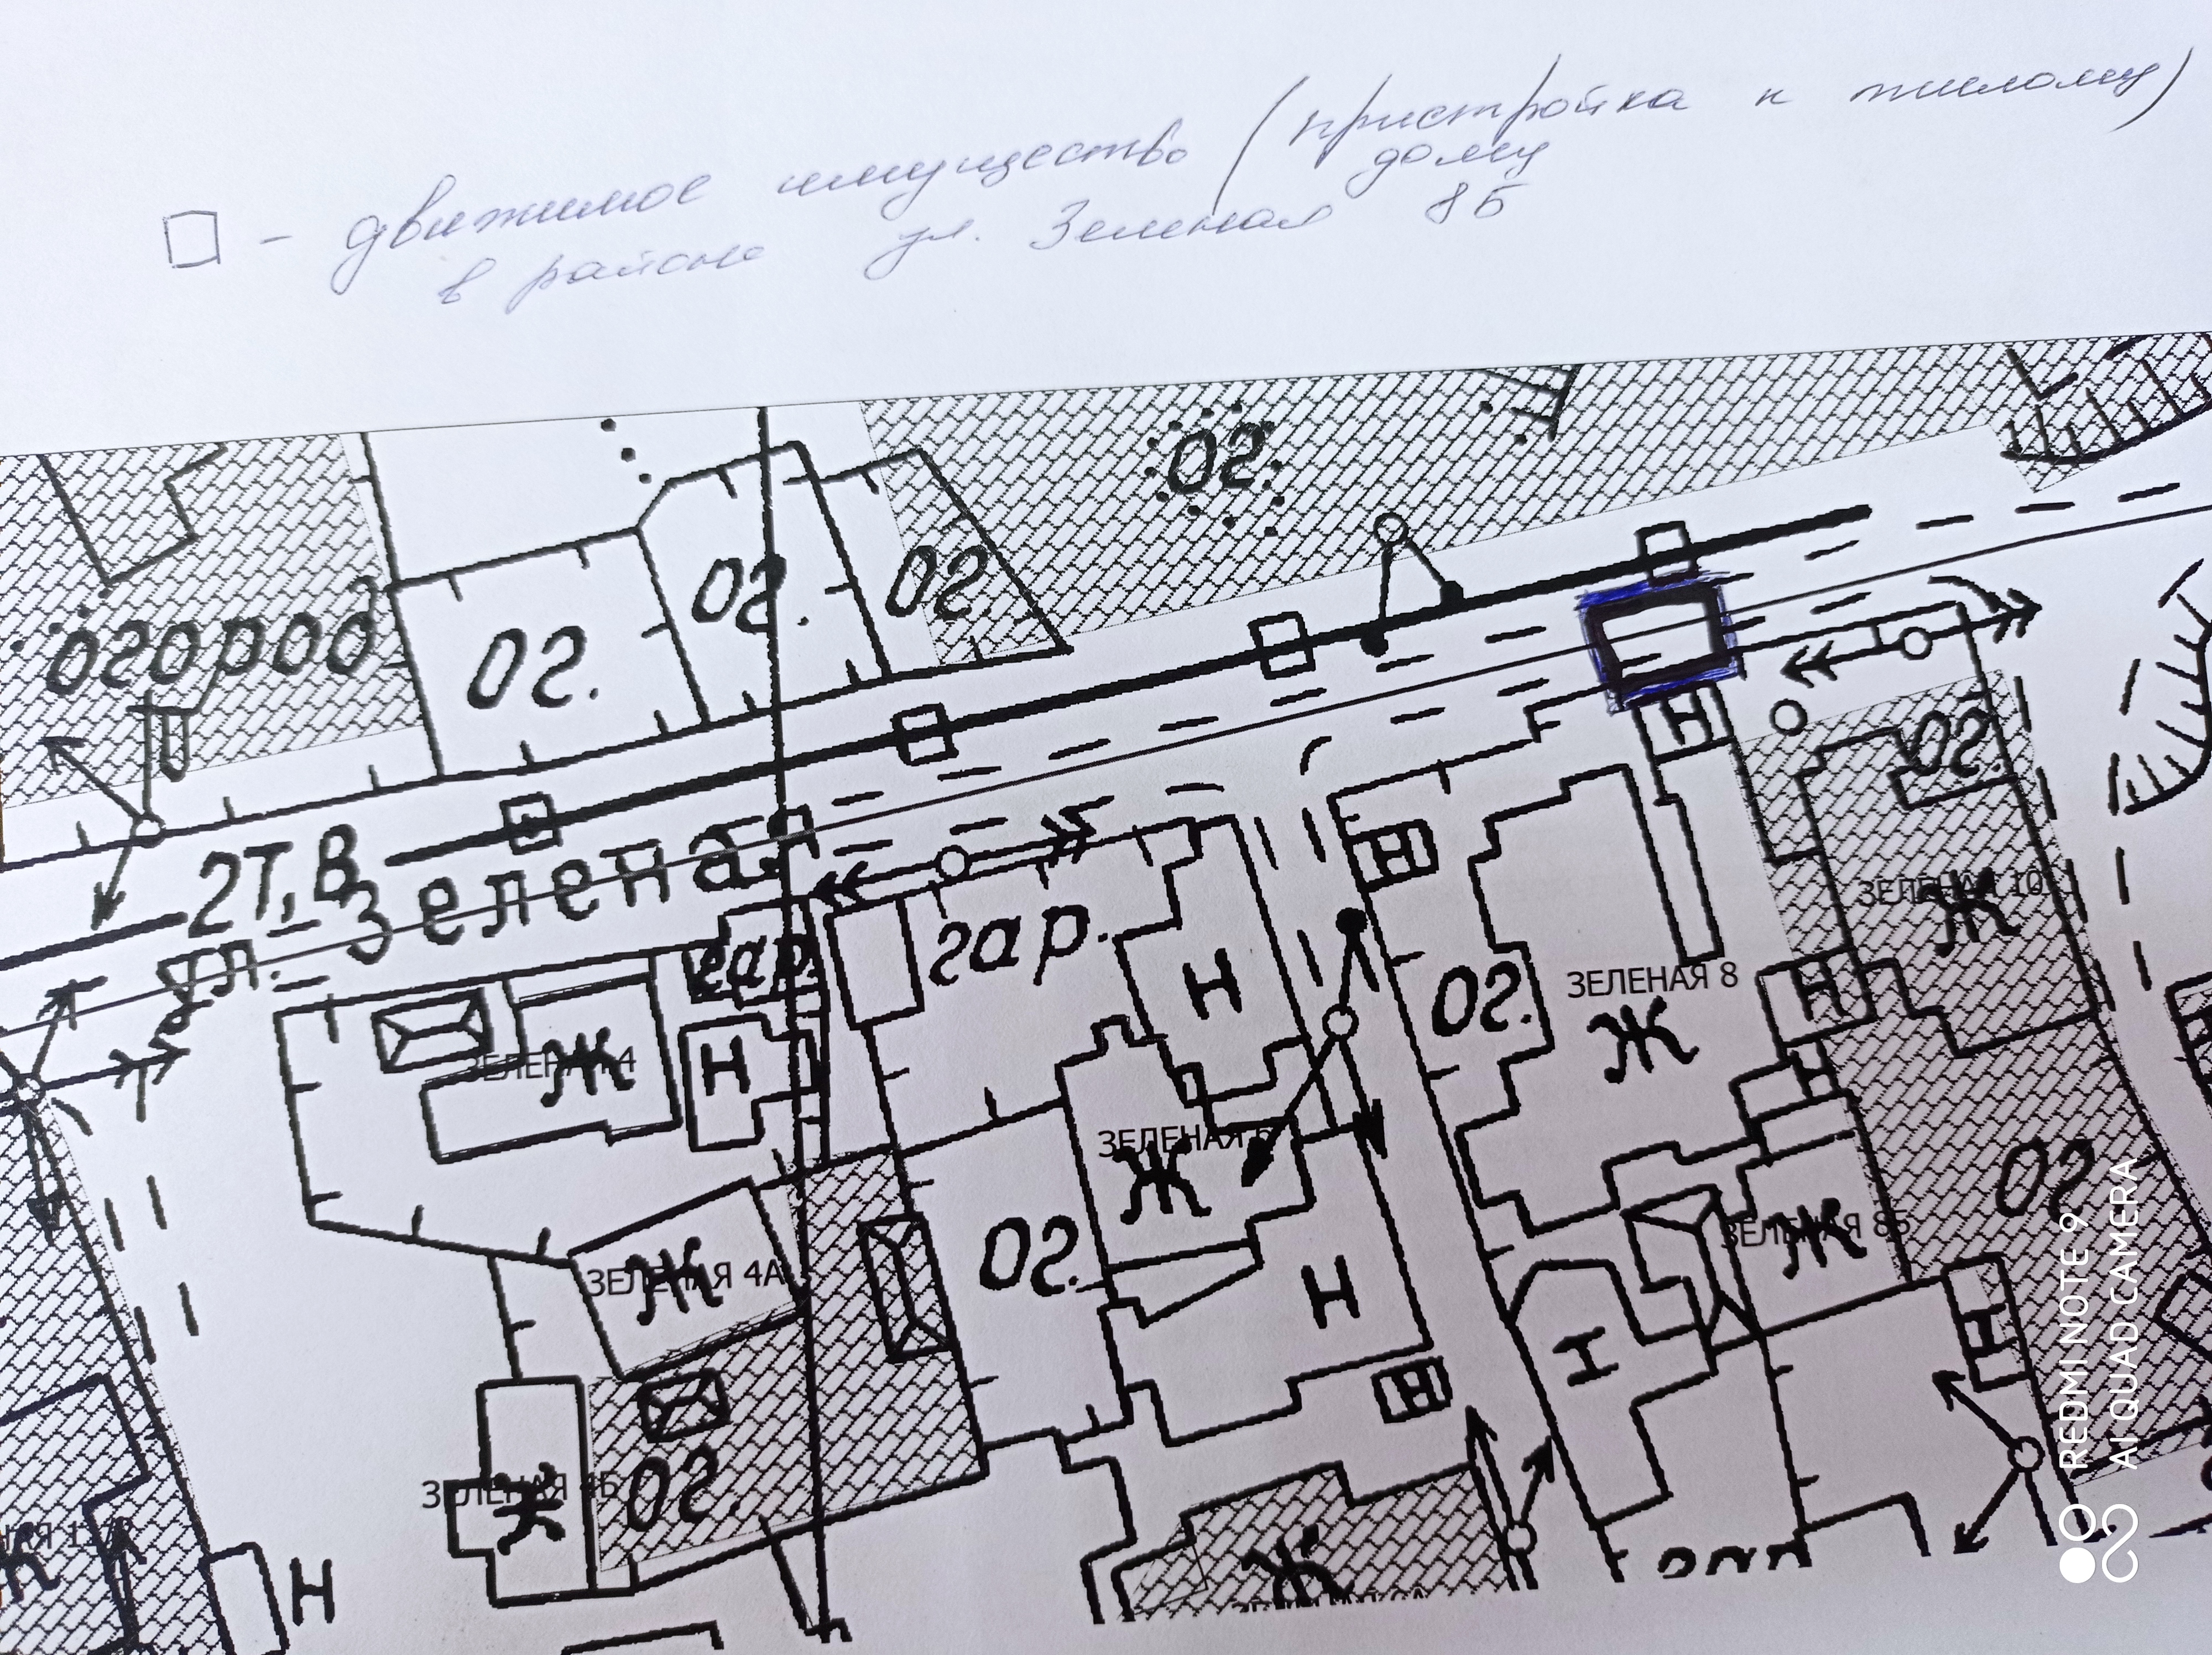 - движимое имущество (пристройка к жилому)
дому
в районе ул. Зеленая 8Б
ог.
ог.
ог.
ог.
огород
2т.в
ул. Зеленая
гар.
гар.
Н
Н
Н
ог.
ЗЕЛЕНАЯ 10
Ж
ЗЕЛЕНАЯ 8
Ж
ог.
Н
Н
Н
ЗЕЛЕНАЯ 4
Ж
Н
ЗЕЛЕНАЯ 6
Ж
ог.
ог.
ЗЕЛЕНАЯ 8Б
Ж
ЗЕЛЕНАЯ 4А
Ж
Н
Н
Н
Н
ЗЕЛЕНАЯ 4Б
Ж
ог.
Ж
Н
Ж
гар
REDMI NOTE 9
AI QUAD CAMERA